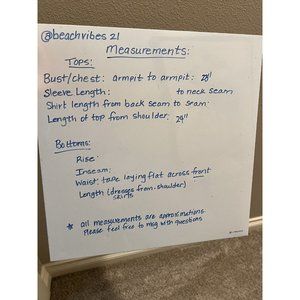 @beachvibes 21
Measurements:
Tops:
Bust/chest: armpit to armpit: 28"
Sleeve Length: to neck seam
Shirt length from back seam to seam:
Length of top from shoulder: 29"
Bottoms:
Rise:
Inseam:
Waist: tape laying flat across front
Length (dresses from shoulder)
skirts
* all measurements are approximations.
Please feel free to msg with questions